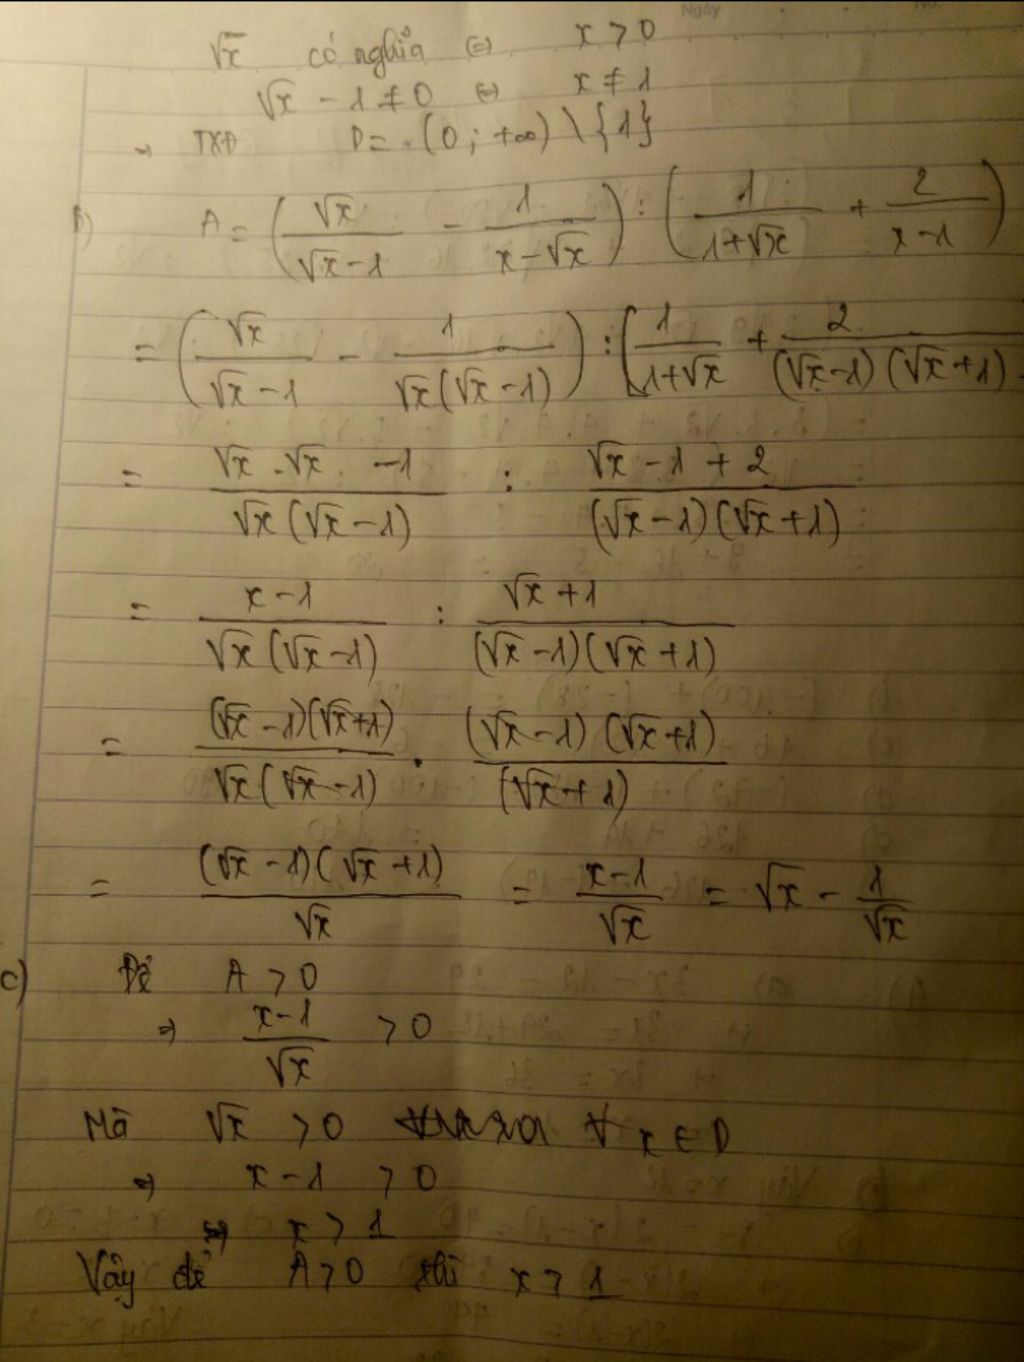 √x có nghĩa ⇔ x > 0
√x - 1 ≠ 0 ⇔ x ≠ 1
→ TXĐ D = (0; +∞) \ {1}
b) A = (√x/(√x-1) - 1/(x-√x)) : (1/(1+√x) + 2/(x-1))
= (√x/(√x-1) - 1/(√x(√x-1))) : (1/(1+√x) + 2/((√x-1)(√x+1))
= (√x.√x - 1)/(√x(√x-1)) : (√x-1+2)/((√x-1)(√x+1))
= (x-1)/(√x(√x-1)) : (√x+1)/((√x-1)(√x+1))
= ((√x-1)(√x+1))/(√x(√x-1)) . ((√x-1)(√x+1))/(√x+1)
= ((√x-1)(√x+1))/√x = (x-1)/√x = √x - 1/√x
c) Để A > 0
⇒ (x-1)/√x > 0
Mà √x > 0 ∀ x ∈ D
⇒ x - 1 > 0
⇒ x > 1
Vậy để A > 0 thì x > 1